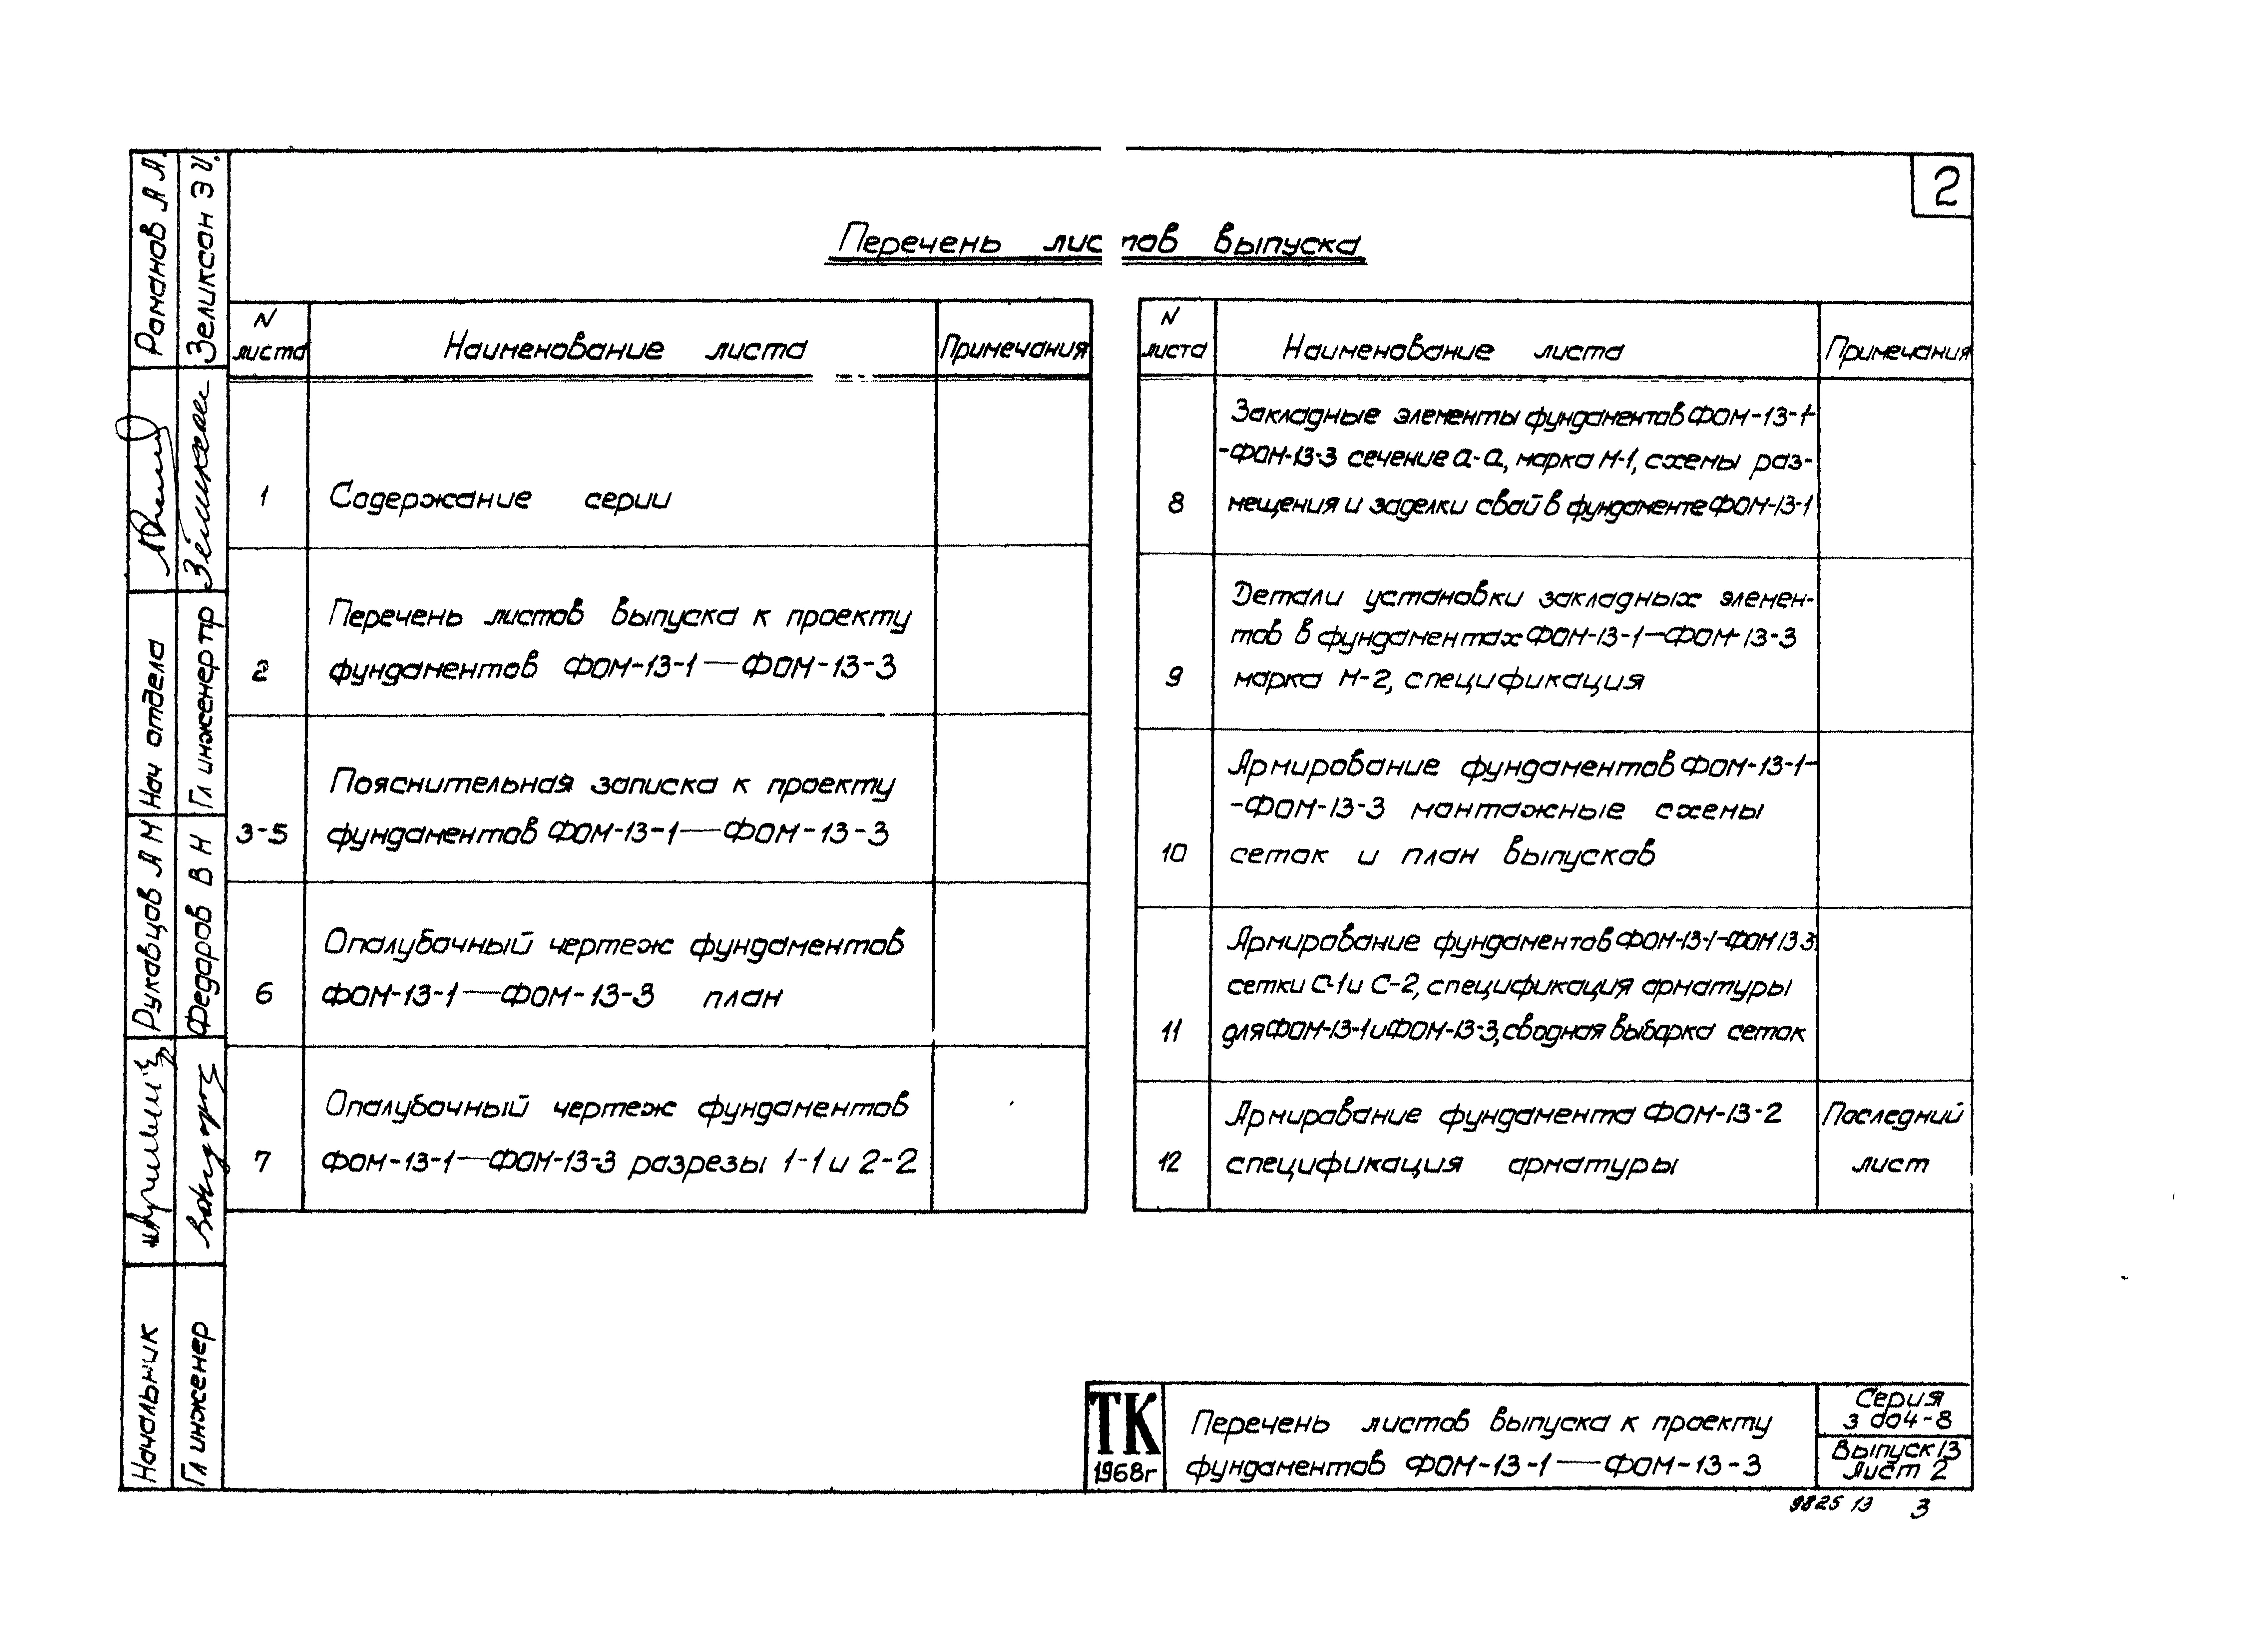 2
Перечень листов выпуска
N листа
Наименование листа
Примечания
1
Содержание серии
2
Перечень листов выпуска к проекту
фундаментов ФОМ-13-1—ФОМ-13-3
3-5
Пояснительная записка к проекту
фундаментов ФОМ-13-1—ФОМ-13-3
6
Опалубочный чертеж фундаментов
ФОМ-13-1—ФОМ-13-3 план
7
Опалубочный чертеж фундаментов
ФОМ-13-1—ФОМ-13-3 разрезы 1-1 и 2-2
N листа
Наименование листа
Примечания
8
Закладные элементы фундаментов ФОМ-13-1-
-ФОМ-13-3 сечение а-а, марка М-1, схемы раз-
мещения и заделки свай в фундаменте ФОМ-13-1
9
Детали установки закладных элемен-
тов в фундаментах ФОМ-13-1—ФОМ-13-3
марка М-2, спецификация
10
Армирование фундаментов ФОМ-13-1-
-ФОМ-13-3 монтажные схемы
сеток и план выпусков
11
Армирование фундаментов ФОМ-13-1-ФОМ 13 3.
сетки С-1 и С-2, спецификация арматуры
для ФОМ-13-1 и ФОМ-13-3, сводная выборка сеток
12
Армирование фундамента ФОМ-13-2
спецификация арматуры
Последний
лист
ТК
1968г
Перечень листов выпуска к проекту
фундаментов ФОМ-13-1—ФОМ-13-3
Серия
3 004-8
Выпуск 13
Лист 2
9825 13 3
Романов А А.
Зеликсон Э И.
Нач отдела
Гл инженер пр
Рукавцов А М
Федоров В Н
Начальник
Гл инженер